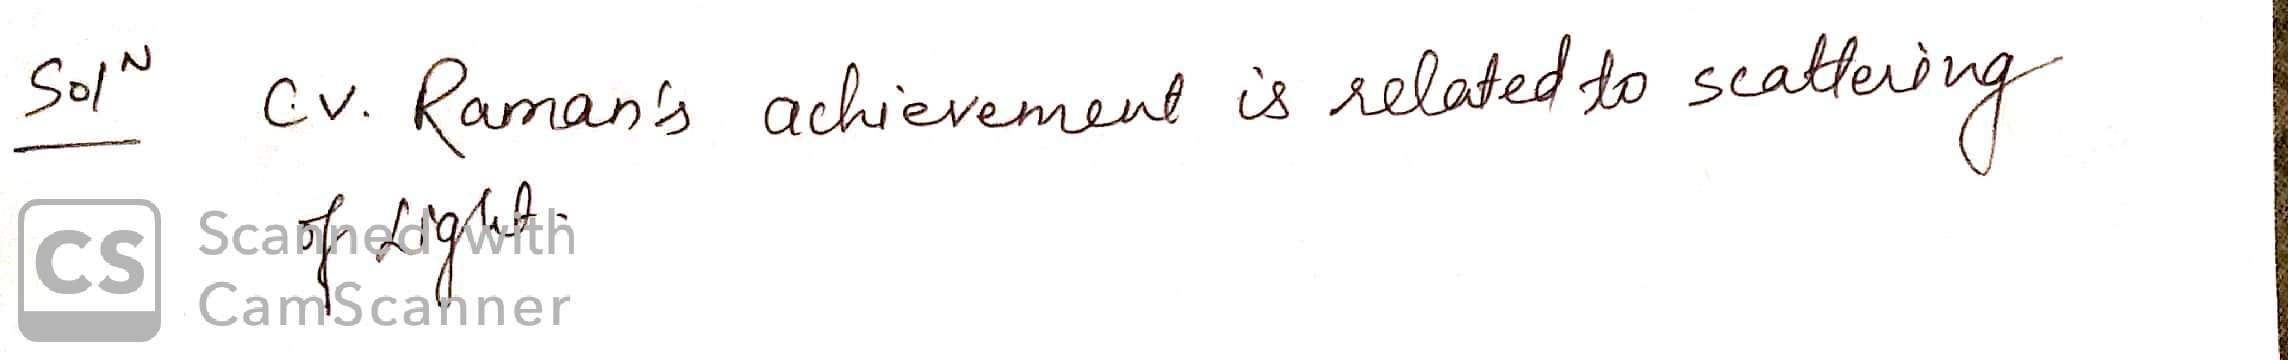 Sol^N C.V. Raman's achievement is related to scattering
of Light.
CS Scanned with
CamScanner